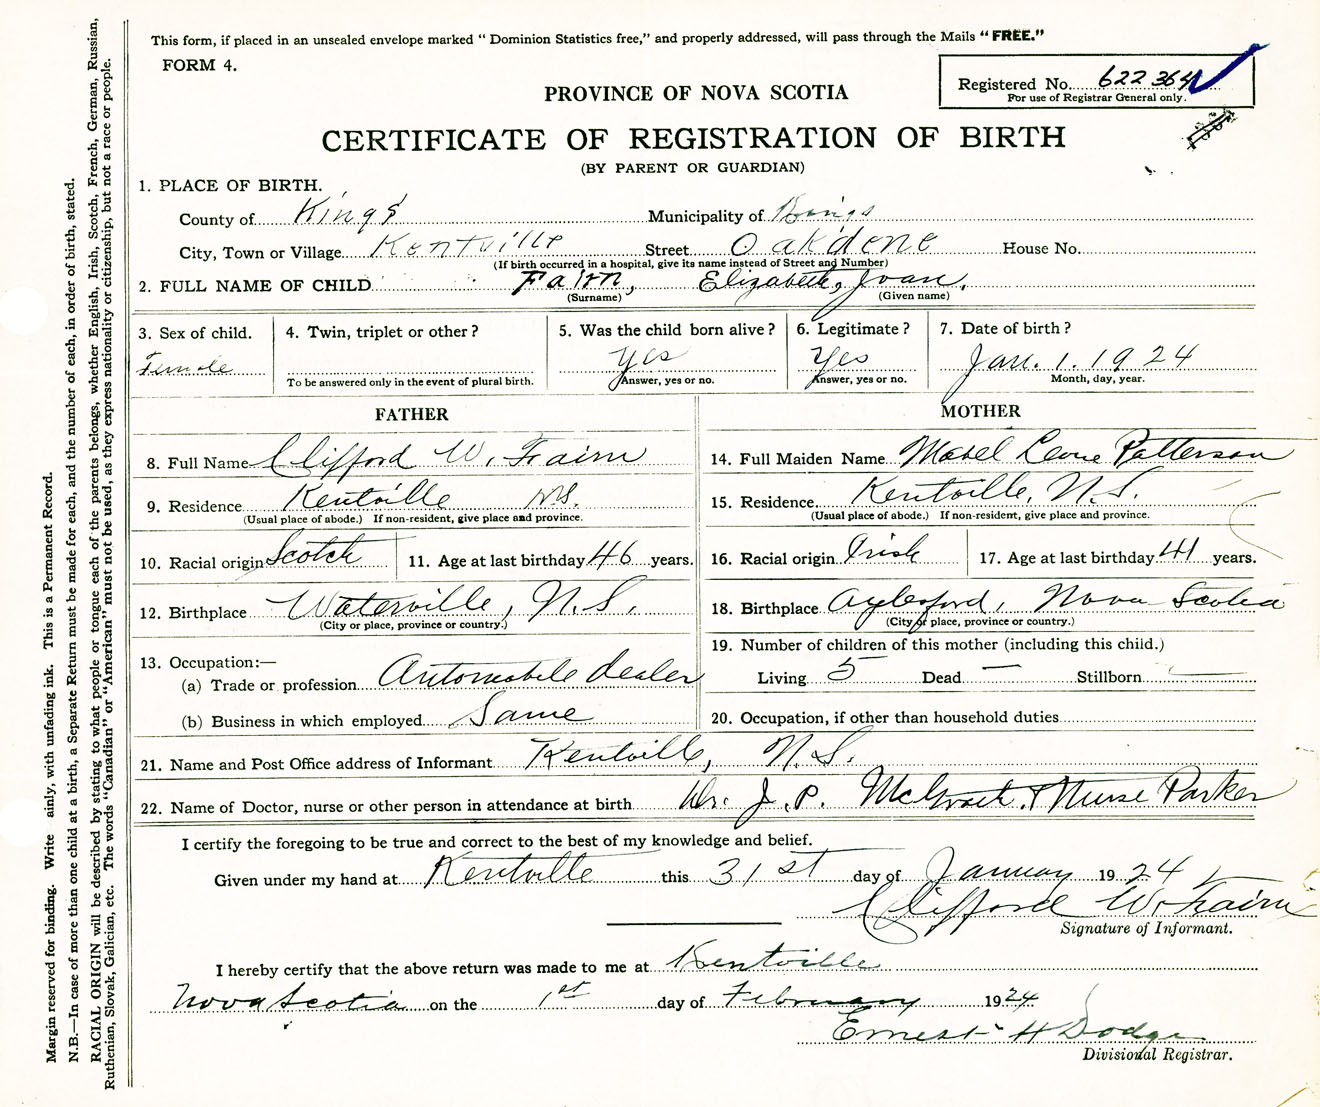 This form, if placed in an unsealed envelope marked “ Dominion Statistics free,” and properly addressed, will pass through the Mails “ FREE.”
FORM 4.
Registered No. 622 364
For use of Registrar General only.
PROVINCE OF NOVA SCOTIA
CERTIFICATE OF REGISTRATION OF BIRTH
(BY PARENT OR GUARDIAN)
1. PLACE OF BIRTH.
County of Kings Municipality of Kings
City, Town or Village Kentville Street Oakdene House No.
(If birth occurred in a hospital, give its name instead of Street and Number)
2. FULL NAME OF CHILD Fairn, Elizabeth, Joan.
(Surname) (Given name)
3. Sex of child. 4. Twin, triplet or other? 5. Was the child born alive? 6. Legitimate? 7. Date of birth?
Female Yes Yes Jan. 1. 1924
To be answered only in the event of plural birth. Answer, yes or no. Answer, yes or no. Month, day, year.
FATHER
8. Full Name Clifford W. Fairn
9. Residence Kentville N.S.
(Usual place of abode.) If non-resident, give place and province.
10. Racial origin Scotch 11. Age at last birthday 46 years.
12. Birthplace Waterville, N.S.
(City or place, province or country.)
13. Occupation:—
(a) Trade or profession Automobile dealer
(b) Business in which employed Same
MOTHER
14. Full Maiden Name Mabel Leone Patterson
15. Residence Kentville, N.S.
(Usual place of abode.) If non-resident, give place and province.
16. Racial origin Irish 17. Age at last birthday 41 years.
18. Birthplace Aylesford, Nova Scotia
(City or place, province or country.)
19. Number of children of this mother (including this child.)
Living 5 Dead — Stillborn —
20. Occupation, if other than household duties
21. Name and Post Office address of Informant Kentville, N.S.
22. Name of Doctor, nurse or other person in attendance at birth Dr. J. P. McGrath & Nurse Parker
I certify the foregoing to be true and correct to the best of my knowledge and belief.
Given under my hand at Kentville this 31st day of January 1924
Clifford W. Fairn
Signature of Informant.
I hereby certify that the above return was made to me at Kentville
Nova Scotia on the 1st day of February 1924
Ernest H Dodge
Divisional Registrar.
Margin reserved for binding. Write ainly, with unfading ink. This is a Permanent Record.
N.B.—In case of more than one child at a birth, a Separate Return must be made for each, and the number of each, in order of birth, stated.
RACIAL ORIGIN will be described by stating to what people or tongue each of the parents belongs, whether English, Irish, Scotch, French, German, Russian,
Ruthenian, Slovak, Galician, etc. The words “Canadian” or “American” must not be used, as they express nationality or citizenship, but not a race or people.